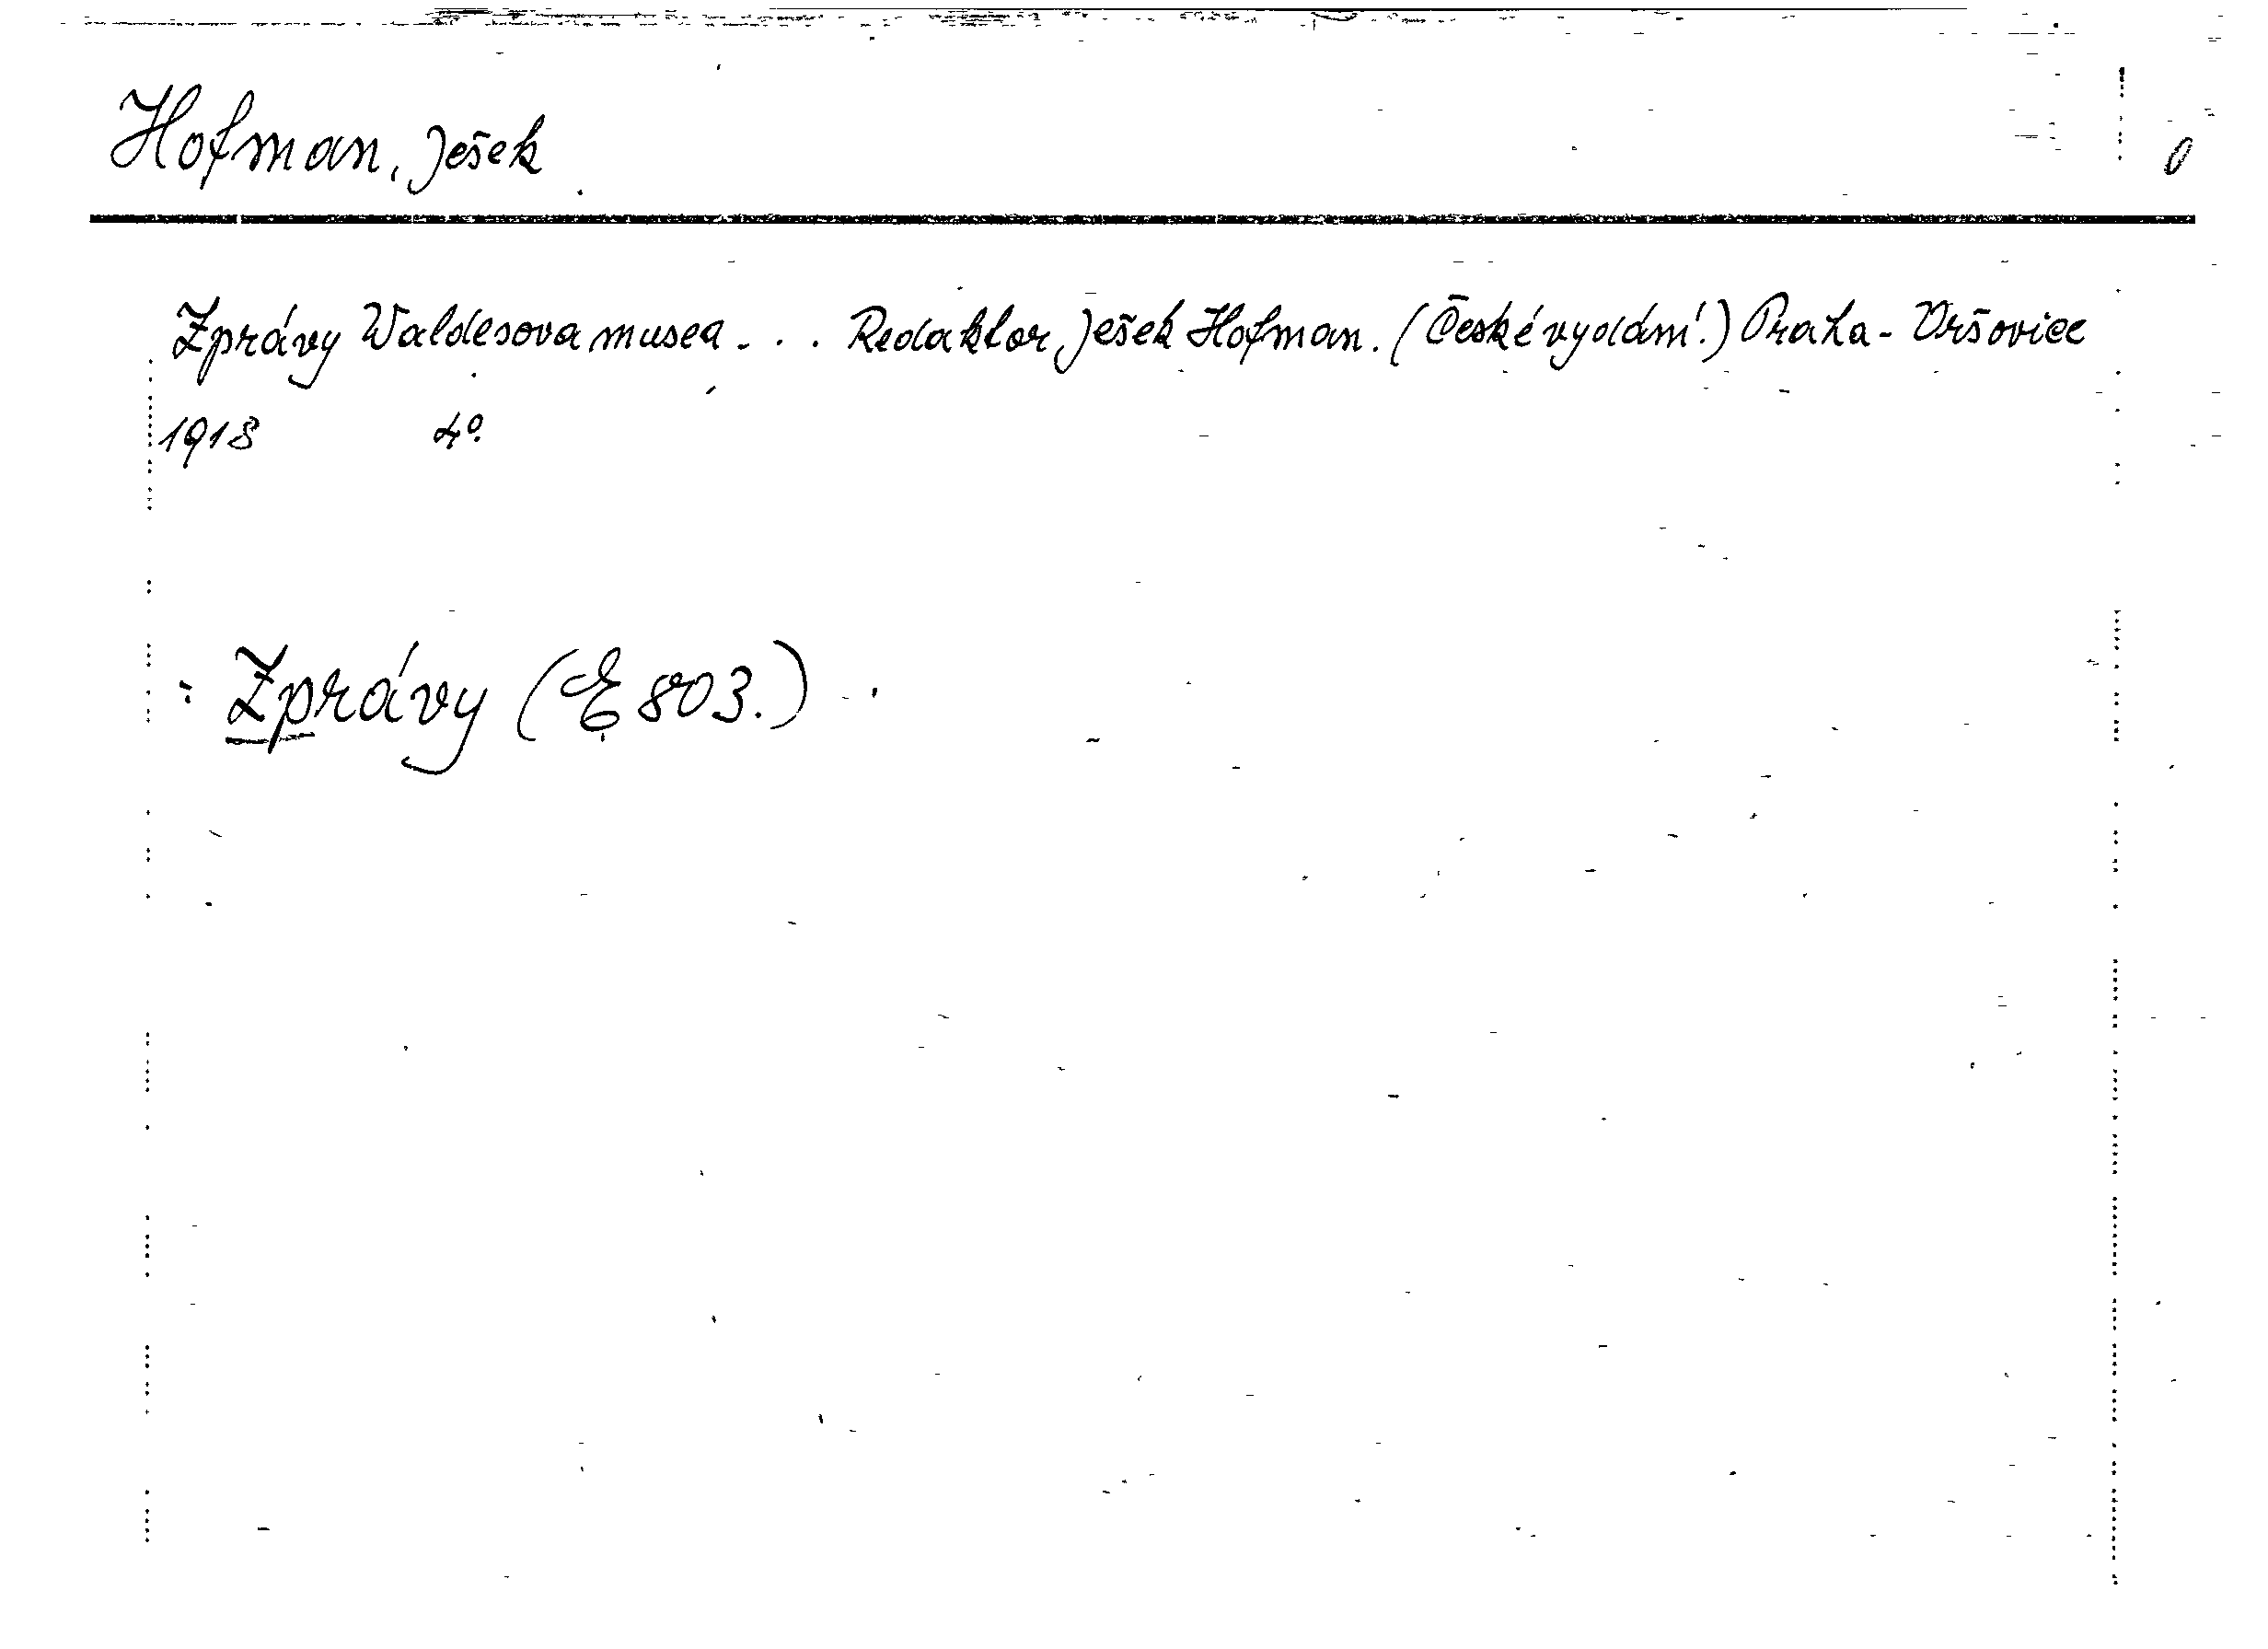 Hofman, Ješek 0
Zprávy Waldesova musea . . . Redaktor Ješek Hofman. (České vydání.) Praha - Vršovice
1918 4°.
: Zprávy (E 803.)